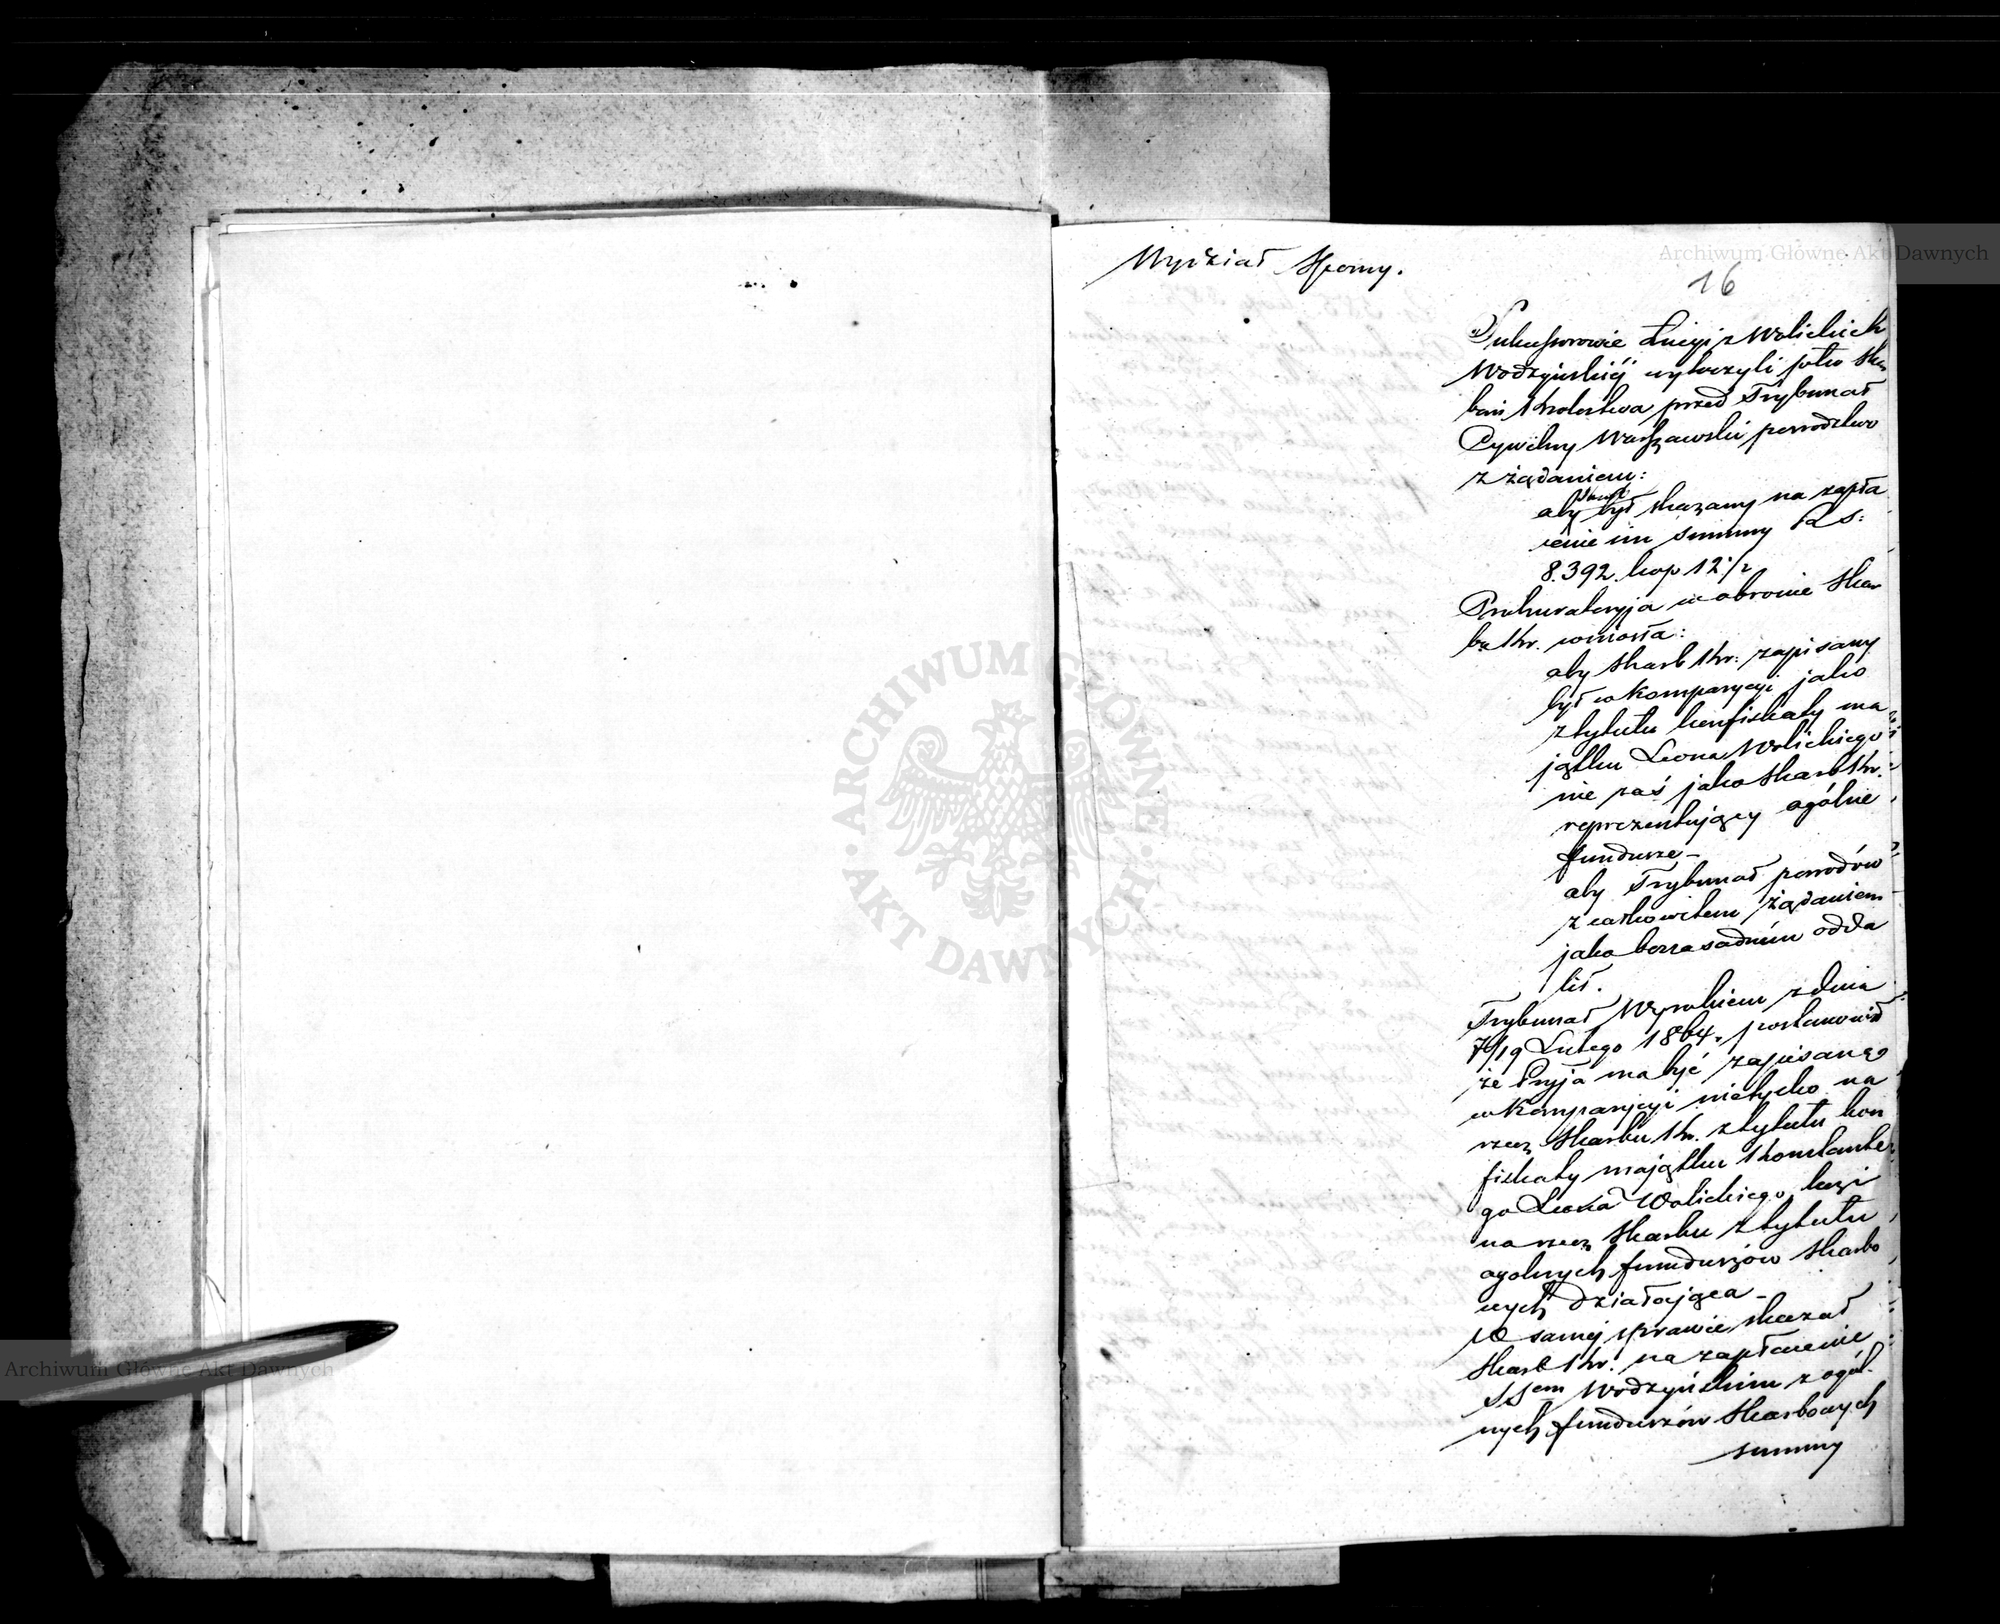 Archiwum Główne Akt Dawnych
Wydział Sporny.
16
Sukcesorowie Łucyi z Wolickich
Wodzyńskiéj wytoczyli pko Skar
bowi Królestwa przed Trybunał
Cywilny Warszawski powództwo
z żądaniem:
Skarb
aby był skazany na zapła
cenie im summy Rs:
8.392. kop 12 1/2
Prokuratoryja w obronie Skar
bu Kr. wniosła:
aby Skarb Kr. zapisany
był w komparycyi jako
z tytułu konfiskaty ma
jątku Leona Wolickiego
nie zaś jako Skarb Kr.
reprezentujący ogólne
fundusze –
aby Trybunał powodów
z całkowitem żądaniem
jako bezzasadnem odda
lił.
Trybunał Wyrokiem z dnia
7/19 Lutego 1864 r. postanowił
że Pryja ma być zapisaną
w Komparycyi nietylko na
rzecz Skarbu Kr. z tytułu kon
fiskaty majątku Konstante
go Leona Wolickiego, lecz i
na rzecz Skarbu z tytułu
ogolnych funduszów Skarbo
wych działająca –
W samej sprawie skazał
Skarb Kr. na zapłacenie
SSem Wodzyńskim z ogól
nych funduszów Skarbowych
summy
ARCHIWUM GŁÓWNE AKT DAWNYCH
Archiwum Główne Akt Dawnych